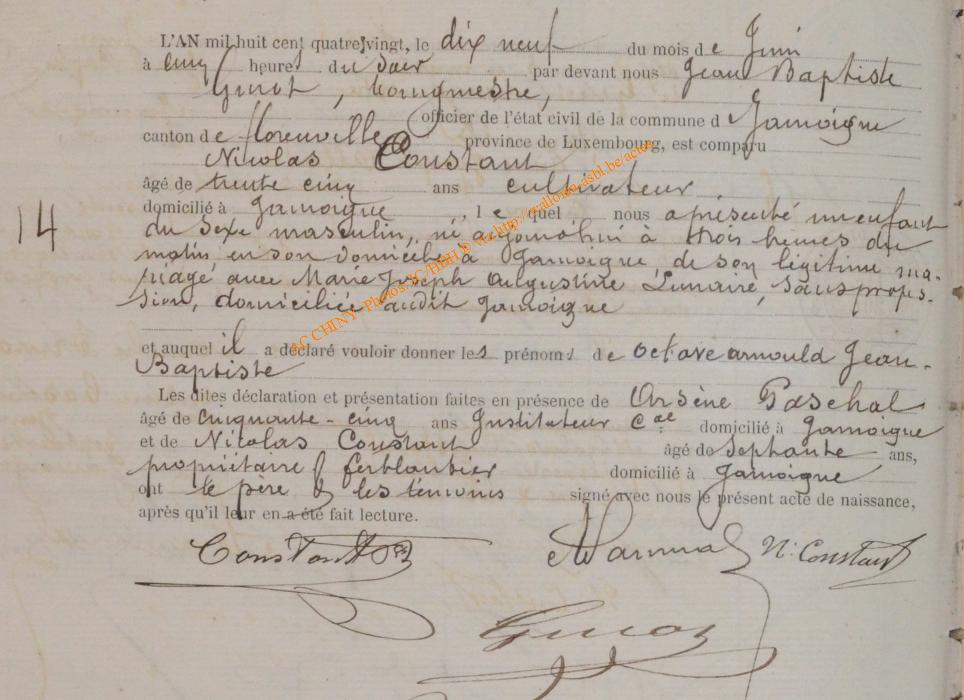 L'AN mil huit cent quatre vingt, le dix neuf du mois de Juin
à cinq heures du soir par devant nous Jean Baptiste
Ginot, bourgmestre,
officier de l'état civil de la commune d e Jamoigne
canton d e florenville province de Luxembourg, est comparu
Nicolas Constant
âgé de trente cinq ans cultivateur
domicilié à Jamoigne, le quel nous a présenté un enfant
du sexe masculin, né aujourd'hui à trois heures du
matin en son domicile à Jamoigne, de son légitime ma-
riage avec Marie Joseph Augustine Lunaire, sans profes-
sion, domiciliée audit Jamoigne
et auquel il a déclaré vouloir donner les prénoms de octave arnould Jean-
Baptiste
Les dites déclaration et présentation faites en présence de Arsène Paschal
âgé de cinquante-cinq ans Instituteur Cal domicilié à Jamoigne
et de Nicolas Constant âgé de septante ans,
propriétaire & ferblantier domicilié à Jamoigne
ont le père & les témoins signé avec nous le présent acte de naissance,
après qu'il leur en a été fait lecture.
14
Constant N. Constant
AC CHINY - Photos SC/HBH © sur http://wallonia.asbl.be/actes